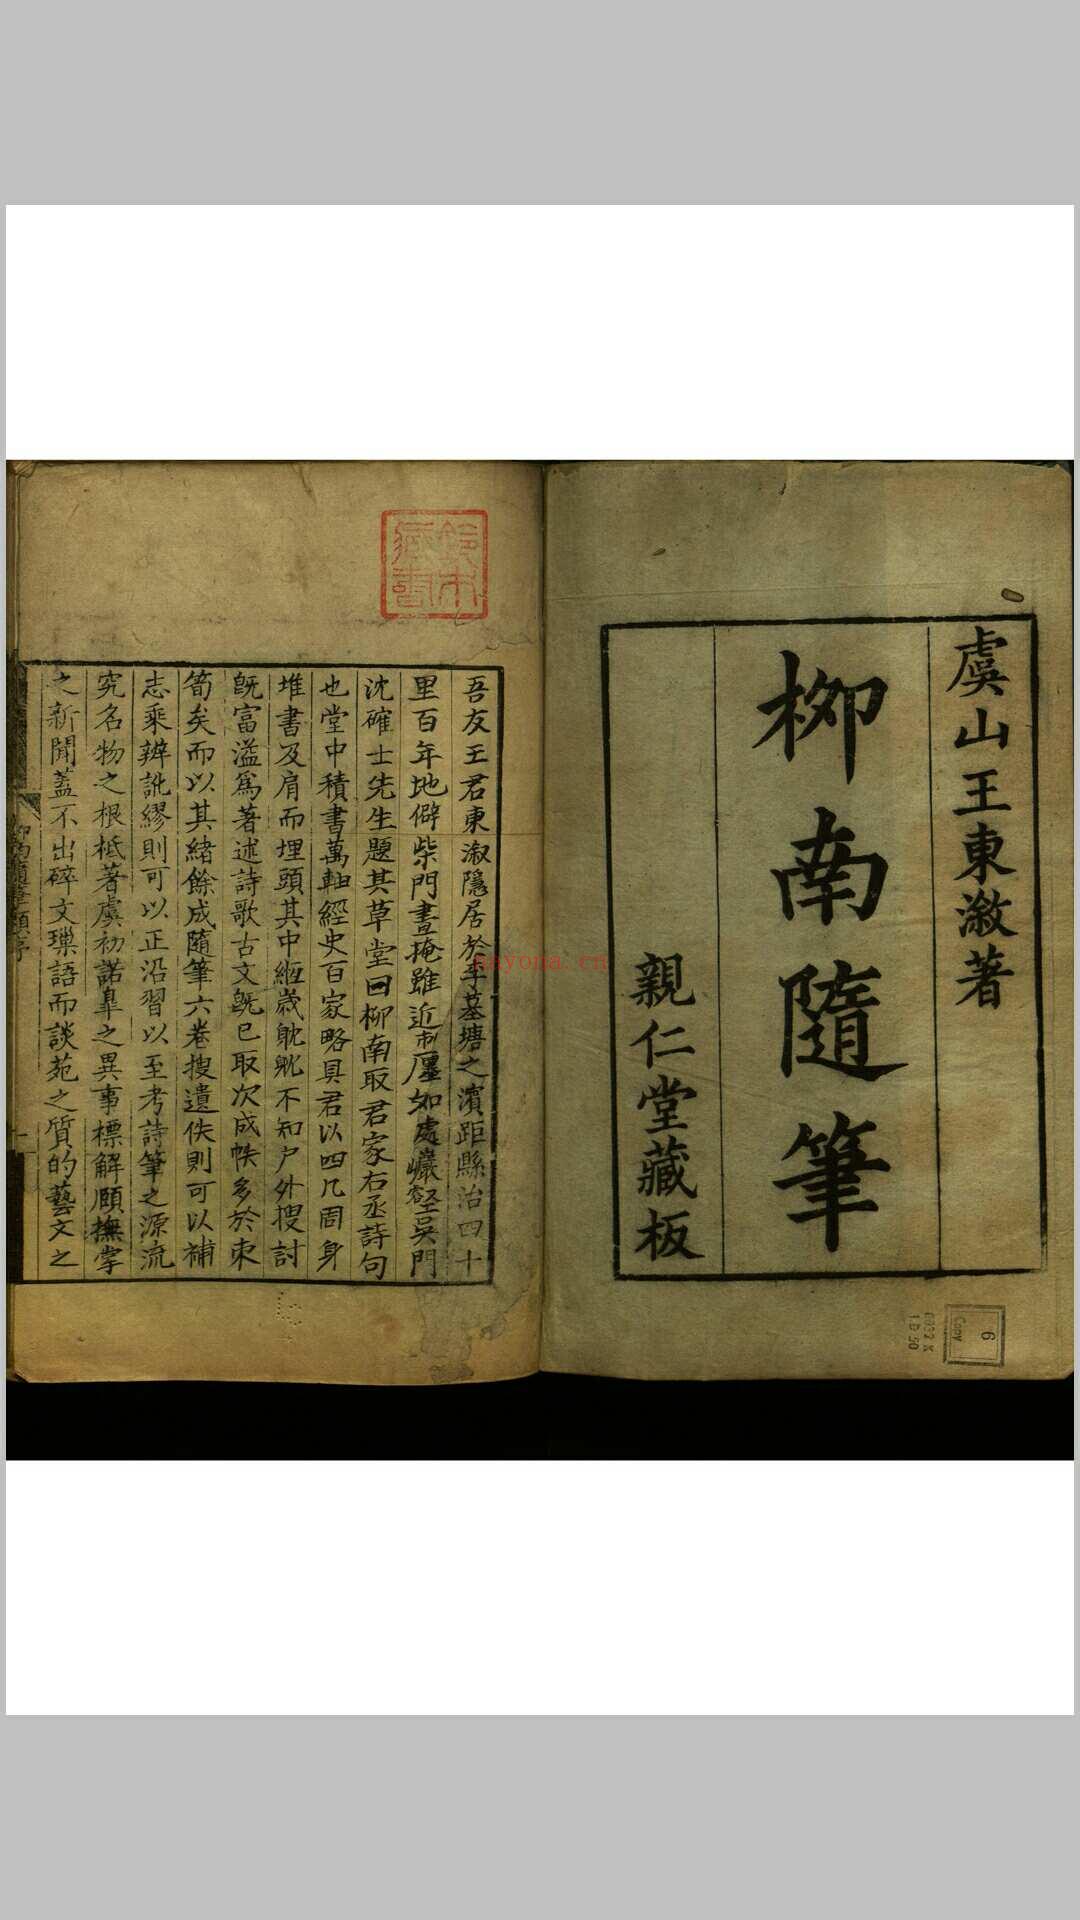 虞山王東漵著
柳南隨筆
親仁堂藏板
吾友王君東漵隱居於李墓塘之濱距縣治四十
里百年地僻柴門晝掩雖近市廛如處巖壑吳門
沈確士先生題其草堂曰柳南取君家右丞詩句
也堂中積書萬軸經史百家略具君以四几周身
堆書及肩而埋頭其中緪歲躭躭不知户外搜討
旣富溢為著述詩歌古文旣已取次成帙多於束
筍矣而以其緒餘成隨筆六卷搜遺佚則可以補
志乘辨訛繆則可以正沿習以至考詩筆之源流
究名物之根柢著虞初諾臯之異事標解頤撫掌
之新聞蓋不出碎文璅語而談苑之質的藝文之
柳南隨筆顧序
鈴木藏書
nayona.cn
6
Copy